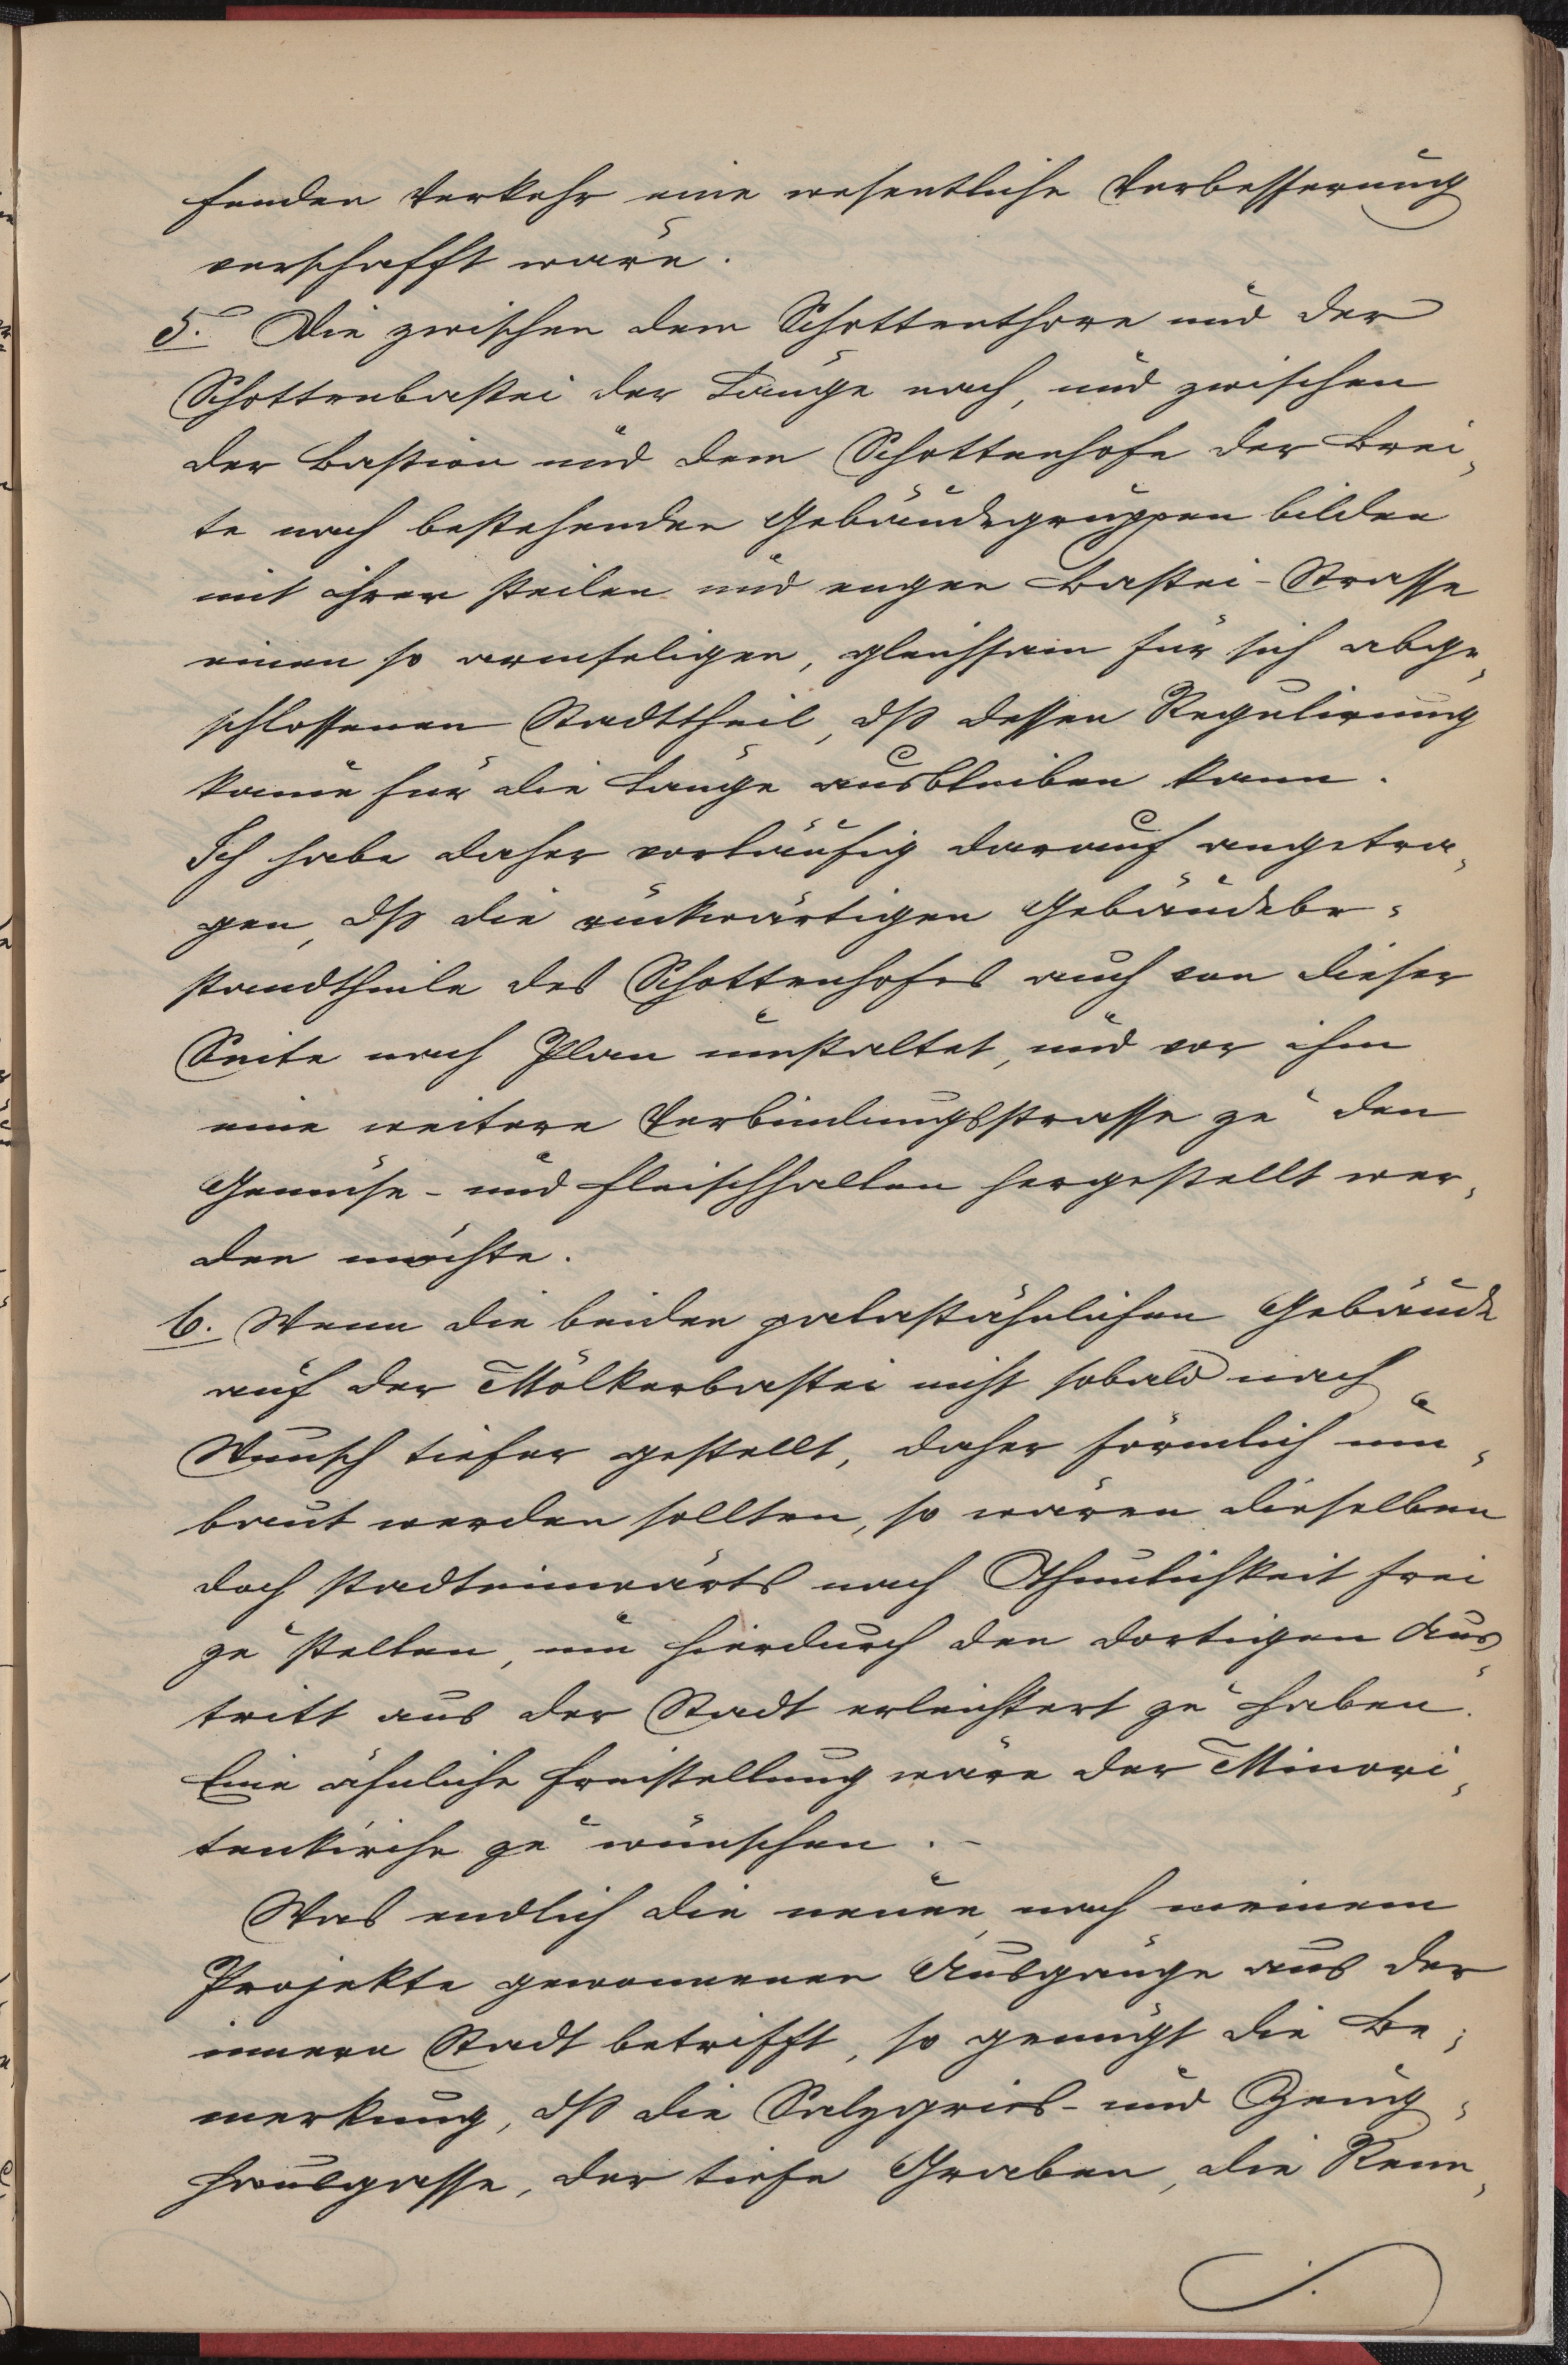 fenden Verkehr eine wesentliche Verbesserung
verschafft wäre.
5. Die zwischen dem Schottenthore und der
Schottenbastei der Länge nach, und zwischen
der Bastion und dem Schottenhofe der Brei-
te nach bestehenden Gebäudegruppen bilden
mit ihrer steilen und engen Bastei-Strasse
einen so armseligen, gleichsam für sich abge-
schlossenen Stadttheil, dß dessen Regulierung
kaum für die Länge ausbleiben kann.
Ich habe daher vorläufig darauf angetra-
gen, dß die rückwärtigen Gebäudebe-
standtheile des Schottenhofes auch von dieser
Seite nach Plan umstaltet, und vor ihm
eine weitere Verbindungsstrasse zu den
Gemüse- und Fleischhallen hergestellt wer-
den möchte.
6. Wenn die beiden palastähnlichen Gebäude
auf der Mölkerbastei nicht sobald nach
Wunsch tiefer gestellt, daher förmlich um-
baut werden sollten, so wären dieselben
doch stadteinwärts nach Thunlichkeit frei
zu stellen, um hierdurch den dortigen Aus-
tritt aus der Stadt erleichtert zu haben.
Eine ähnliche Freistellung wäre der Minori-
tenkirche zu wünschen. -
Was endlich die neuen, nach meinem
Projekte gewonnenen Ausgänge aus der
innern Stadt betrifft, so genügt die Be-
merkung, dß die Salzgries- und Zeug-
hausgasse, der tiefe Graben, die Renn-